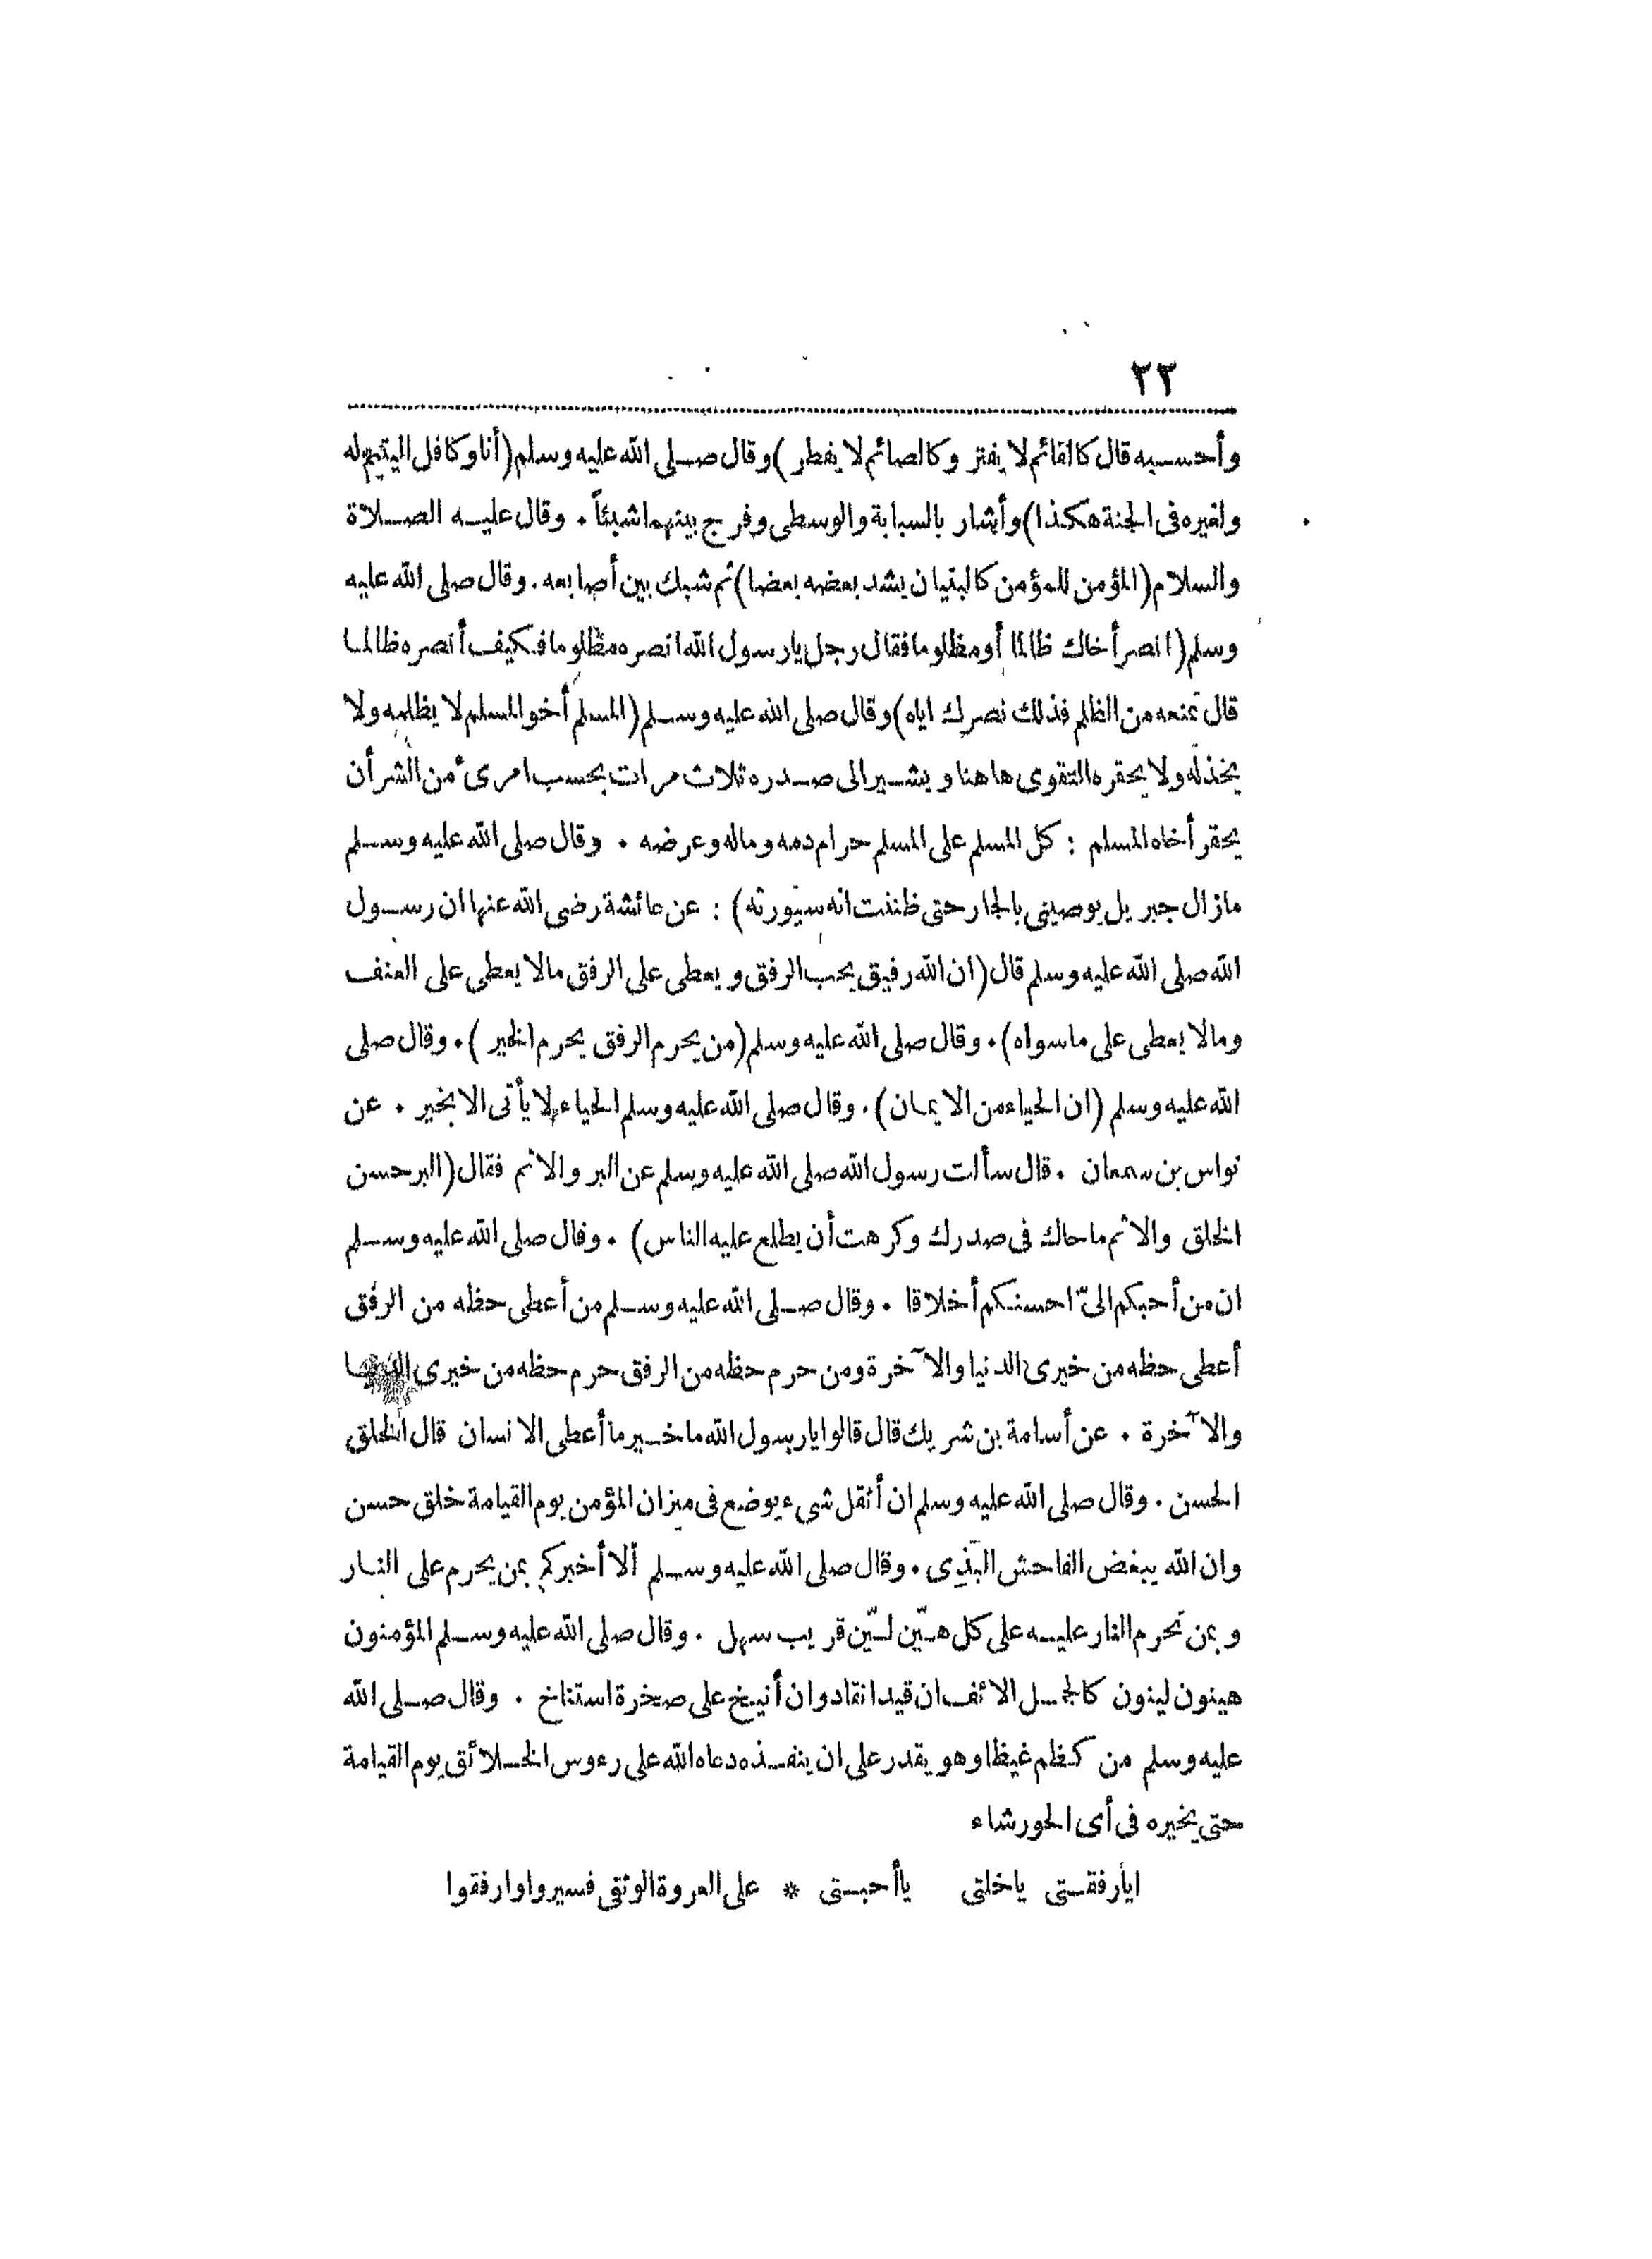 ٢٣
وأحسبه قال كالقائم لا يفتر وكالصائم لا يفطر) وقال صلى الله عليه وسلم (أنا وكافل اليتيم له
ولغيره فى الجنة هكذا) وأشار بالسبابة والوسطى وفرج بينهما شيئاً . وقال عليه الصلاة
والسلام (المؤمن للمؤمن كالبنيان يشد بعضه بعضا) ثم شبك بين أصابعه . وقال صلى الله عليه
وسلم (انصر أخاك ظالما أو مظلوما فقال رجل يا رسول الله انصره مظلوما فكيف أنصره ظالما
قال تمنعه من الظلم فذلك نصرك اياه) وقال صلى الله عليه وسلم (المسلم أخو المسلم لا يظلمه ولا
يخذله ولا يحقره التقوى ها هنا ويشير الى صدره ثلاث مرات بحسب امرئ من الشر أن
يحقر أخاه المسلم : كل المسلم على المسلم حرام دمه وماله وعرضه . وقال صلى الله عليه وسلم
مازال جبريل يوصينى بالجار حتى ظننت انه سيورثه) : عن عائشة رضى الله عنها ان رسول
الله صلى الله عليه وسلم قال (ان الله رفيق يحب الرفق ويعطى على الرفق مالا يعطى على العنف
ومالا يعطى على ماسواه) . وقال صلى الله عليه وسلم (من يحرم الرفق يحرم الخير ) . وقال صلى
الله عليه وسلم (ان الحياء من الايمان) . وقال صلى الله عليه وسلم الحياء لا يأتى الا بخير . عن
نواس بن سمعان . قال سألت رسول الله صلى الله عليه وسلم عن البر والاثم فقال (البر حسن
الخلق والاثم ماحاك فى صدرك وكرهت أن يطلع عليه الناس) . وقال صلى الله عليه وسلم
ان من أحبكم الىّ احسنكم أخلاقا . وقال صلى الله عليه وسلم من أعطى حظه من الرفق
أعطى حظه من خيرى الدنيا والآخرة ومن حرم حظه من الرفق حرم حظه من خيرى الدنيا
والآخرة . عن أسامة بن شريك قال قالوا يا رسول الله ما خير ما أعطى الانسان قال الخلق
الحسن . وقال صلى الله عليه وسلم ان أثقل شىء يوضع فى ميزان المؤمن يوم القيامة خلق حسن
وان الله يبغض الفاحش البذى . وقال صلى الله عليه وسلم ألا أخبركم بمن يحرم على النار
وبمن تحرم النار عليه على كل هيّن ليّن قريب سهل . وقال صلى الله عليه وسلم المؤمنون
هينون لينون كالجمل الانف ان قيد انقاد وان أنيخ على صخرة استناخ . وقال صلى الله
عليه وسلم من كظم غيظا وهو يقدر على ان ينفذه دعاه الله على رءوس الخلائق يوم القيامة
حتى يخيره فى أى الحور شاء
ايا رفقتى ياخلتى ياأحبتى * على العروة الوثقى فسيروا وارفقوا